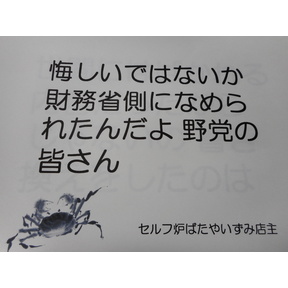 悔しいではないか
財務省側になめら
れたんだよ 野党の
皆さん
セルフ炉ばたやいずみ店主